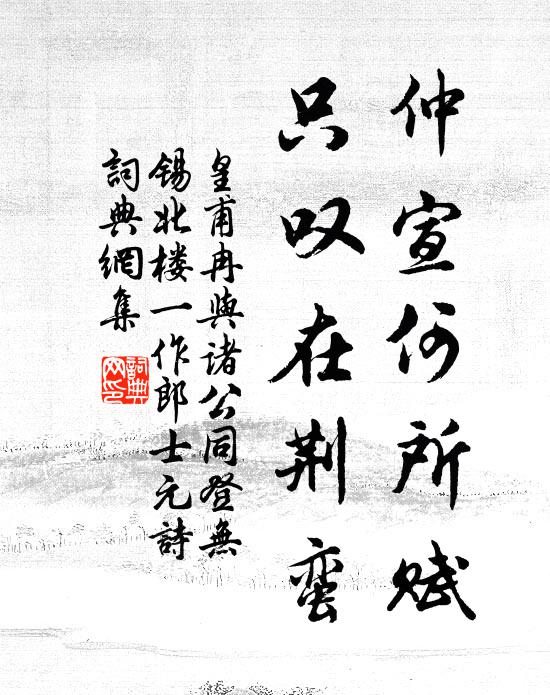 仲宣何所赋
只叹在荆蛮
皇甫冉與诸公同登無
锡北楼一作郎士元詩
詞典網集
詞典
网印